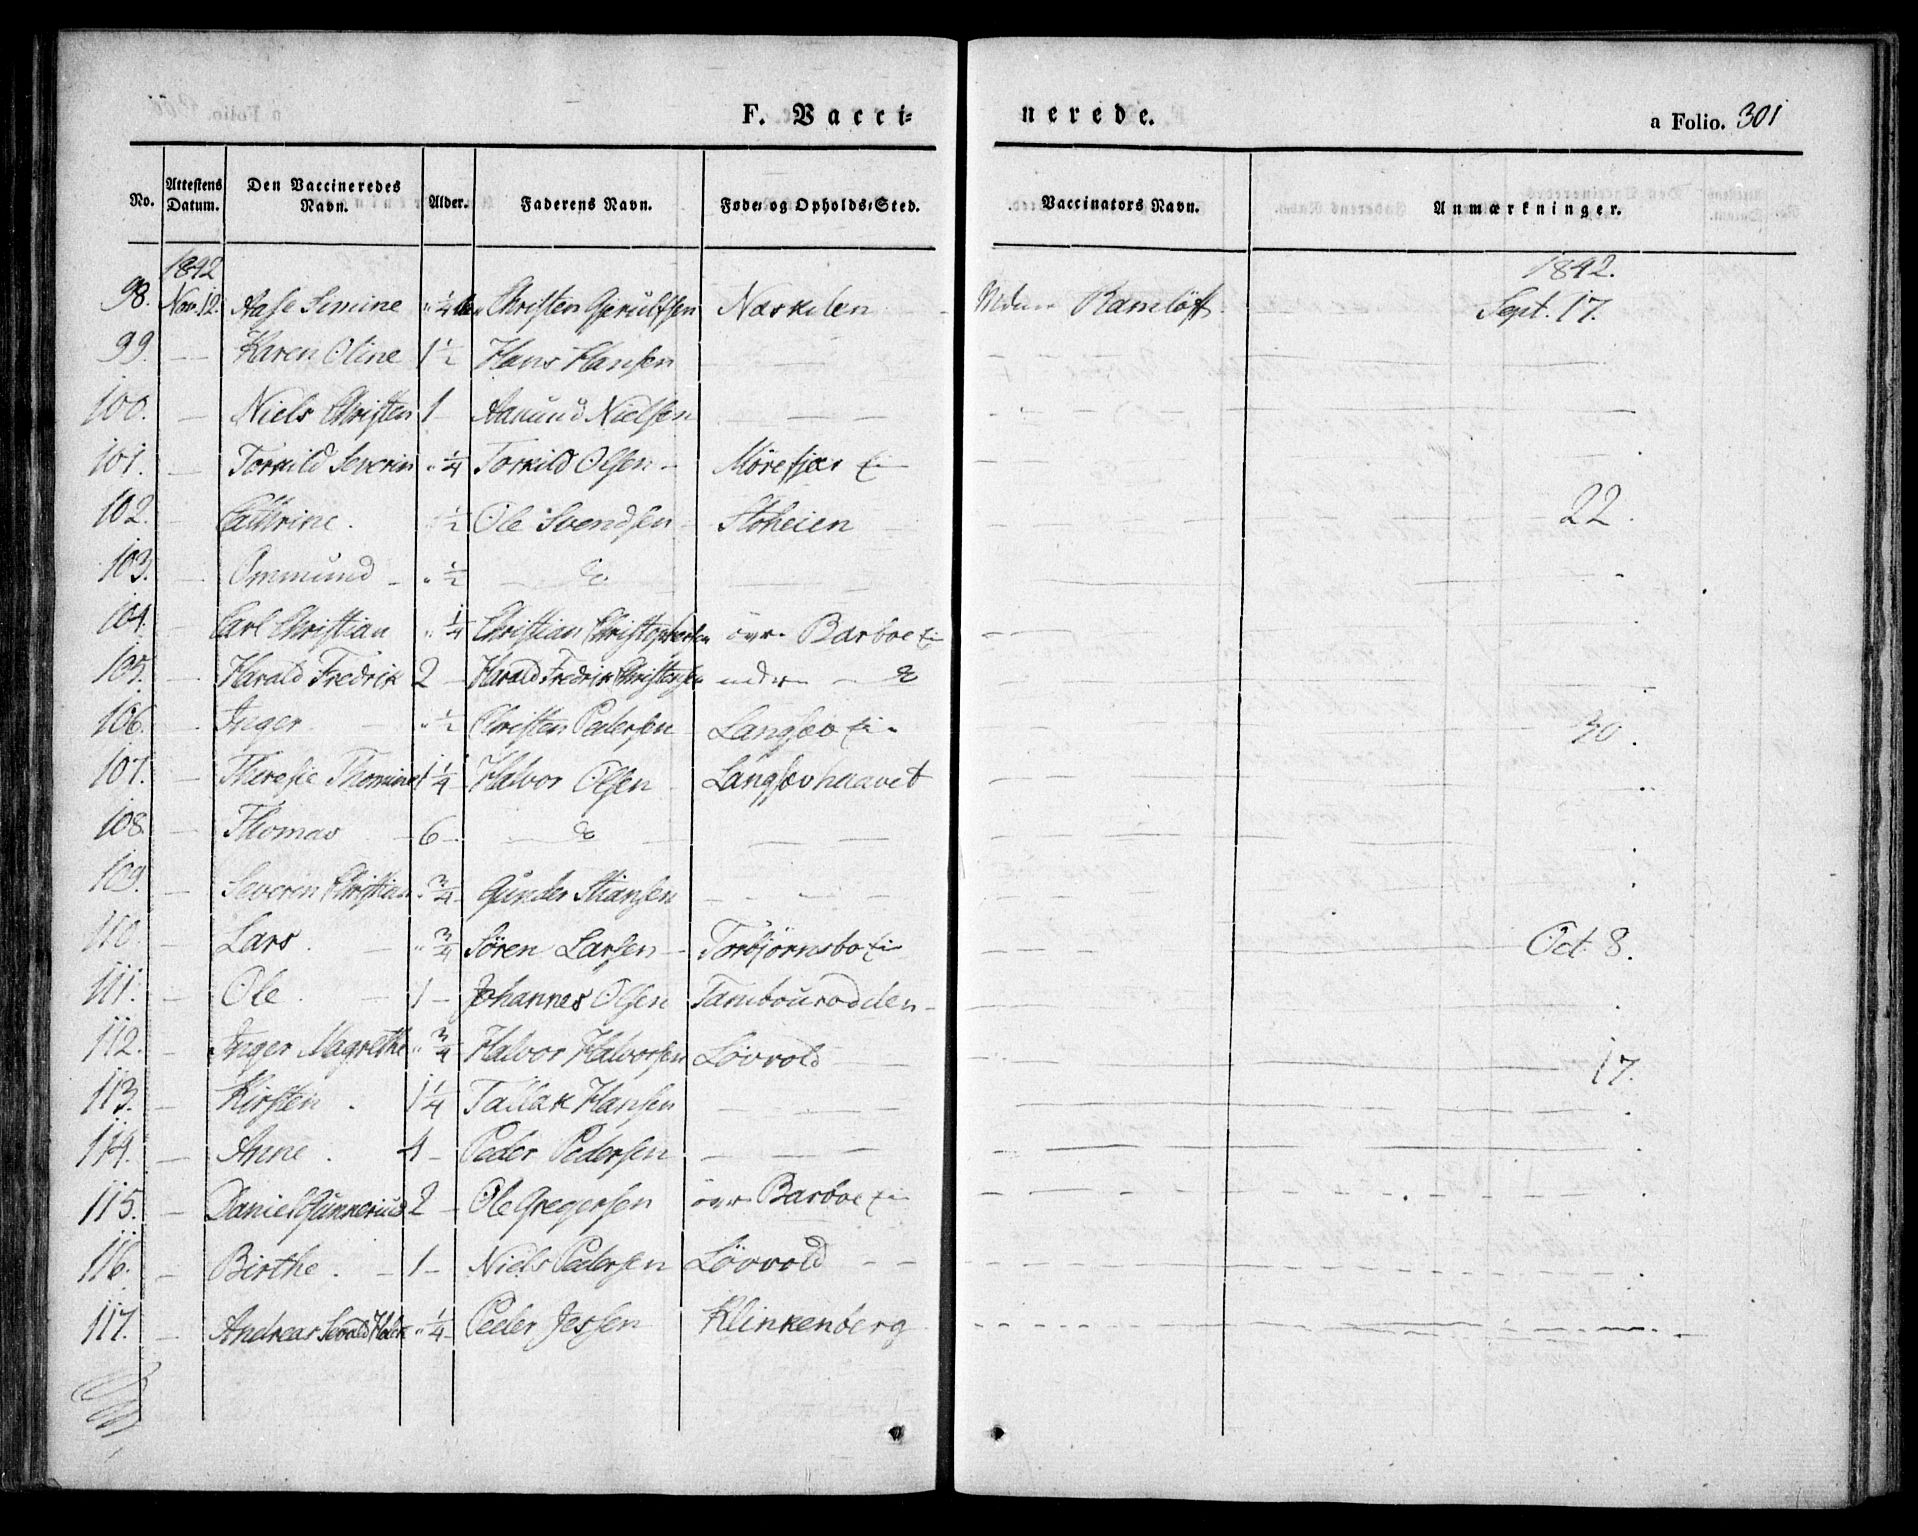 F. Vacci=
nerede.
a Folio. 301
No. Attestens Datum. Den Vaccineredes Navn. Alder. Faderens Navn. Føde= og Opholds=Sted. Vaccinators Navn. Anmærkninger.
1842 1842.
98. Nov. 12. Aase Simine " 1/4 Christen Gjerulfsen Naskilen Ramlöff. Sept. 17.
99. — Karen Oline 1 1/2 Hans Hansen — —
100. — Niels Christen 1 — Aanund Nielsen — — —
101. — Torkild Severin " 1/4 Torkild Olsen — Mörefjær —
102. — Cathrine. " 1/2 Ole Svendsen — Stöheien — 22.
103. — Ommund — " 1/2 — do — —
104. — Carl Christian " 1/4 Christian Christophersen övr. Barboe
105. — Harald Fredrik 2 — Harald Fredrik Christensen nedr. — do
106. — Inger — " 1/2 Christen Pedersen Langsæv 30.
107. — Theresie Thomine 1 1/4 Halvor Olsen Langsævhaavet
108. — Thomas — 6 — — do — — —
109. — Severin Christian " 3/4 Gunder Stiansen — — —
110. — Lars. — " 3/4 Sören Larsen — Torbjörnsbo — Oct. 8.
111. — Ole. — 1 — Johannes Olsen Tambourodden —
112. — Inger Magrethe " 3/4 Halvor Halvorsen Lövvold — — 17.
113. — Kirsten. 1 1/4 Tallak Hansen — — —
114. — Anne. 4 — Peder Pedersen — — —
115. — Daniel Gunnerius 2 — Ole Gregersen övr. Barboe
116. — Birthe. — 1 — Niels Pedersen Lövvold — —
117. — Andreas " 1/4 — Peder Jessen Klinkenberg